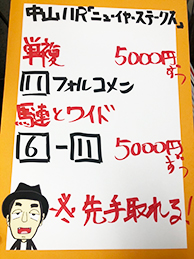 中山11R「ニューイヤーステークス」
単複 5000円ずつ
11 フォルコメン
馬連とワイド
6-11 5000円ずつ
先手取れる!